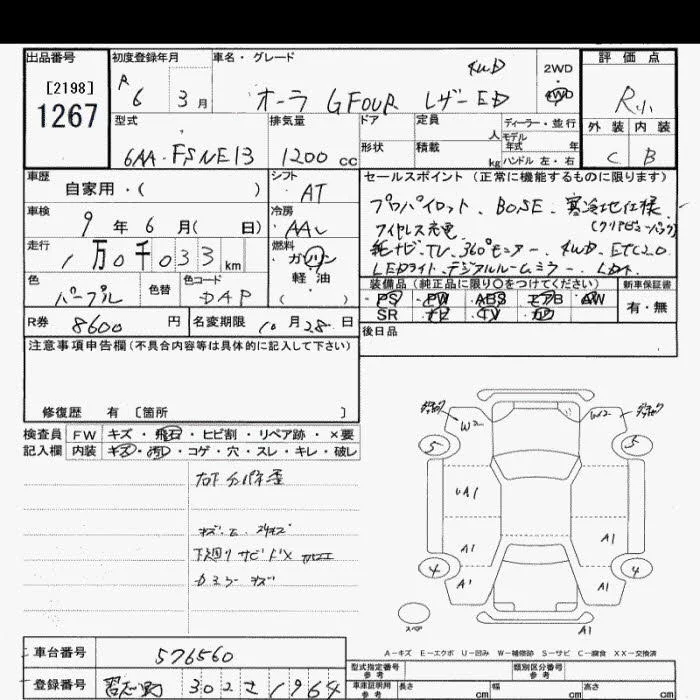 出品番号
[2198]
1267
初度登録年月
R 6 3月
車名・グレード
4WD
オーラ GFOUR レザーED
2WD
・
4WD
評価点
R小
外装 内装
C B
型式
6AA-FSNE13
排気量
1200 cc
ドア
形状
定員 人
積載 kg
ディーラー・並行
モデル
年式 年
ハンドル 左・右
車歴
自家用・( )
シフト
・AT
車検
9年6月( 日)
冷房
・AAC
走行
1万0千033 km
燃料
ガソリン
軽油
( )
色
パープル
色替
色コード
DAP
R券 8600円
名変期限 10月28日
セールスポイント(正常に機能するものに限ります)
プロパイロット、BOSE、寒冷地仕様
ワイヤレス充電
純ナビ、TV、360°モニター、4WD、ETC2.0
LEDライト、デジタルルームミラー
装備品(純正品に限り○をつけてください)
・PS ・PW ・ABS ・エアB ・AW
SR ・ナビ ・TV ・カワ
新車保証書
有・無
後日品
注意事項申告欄(不具合内容等は具体的に記入して下さい)
修復歴 有 [箇所 ]
検査員記入欄
FW キズ・飛石・ヒビ割・リペア跡・×要
内装 キズ・汚れ・コゲ・穴・スレ・キレ・破レ
下廻りサビ
W2 W2
5 5
A1
A1 A1
4 4
A1 A1
スペア
A1
A-キズ E-エクボ U-凹み W-補修跡 S-サビ C-腐食 XX-交換済
車台番号 576560
登録番号 習志野 302 さ 1964
型式指定番号
参考
類別区分番号
参考
車庫証明用
参考
長さ cm 幅 cm 高さ cm